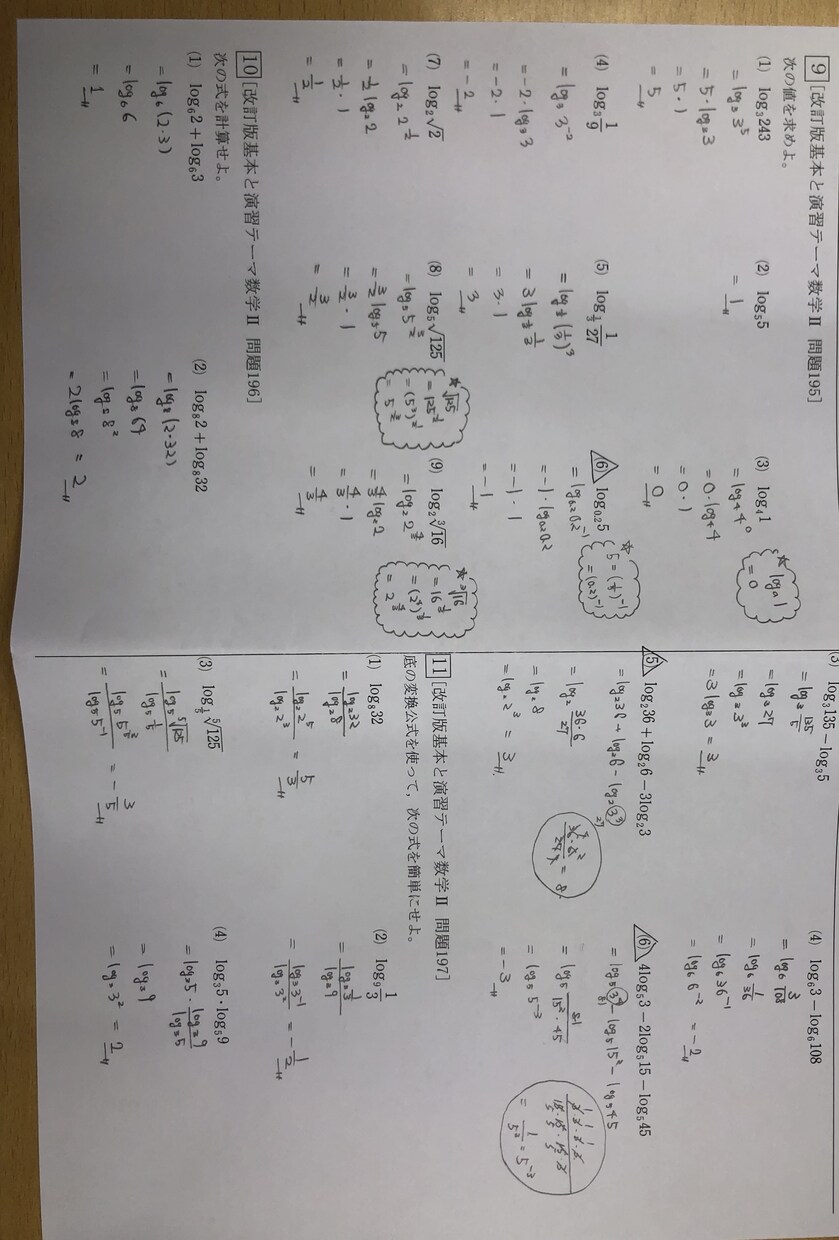 9 [改訂版基本と演習テーマ数学Ⅱ 問題195]
次の値を求めよ。
(1) log₃243
= log₃3⁵
= 5・log₃3
= 5・1
= 5
(2) log₅5
= 1
(3) log₄1
= log₄4⁰
= 0・log₄4
= 0・1
= 0
★ logₐ1
= 0
(4) log₃1/9
= log₃3⁻²
= -2・log₃3
= -2・1
= -2
(5) log_{1/3}1/27
= 3・1
= 3
6 log₀.₂5
= log₀.₂0.2⁻¹
= -1・log₀.₂0.2
= -1・1
= -1
★ 5 = (1/5)⁻¹
= (0.2)⁻¹
(7) log₂√2
= log₂2^{1/2}
= 1/2 log₂2
= 1/2・1
= 1/2
(8) log₅√125
= log₅5^{3/2}
= 3/2 log₅5
= 3/2・1
= 3/2
★ √125
= 125^{1/2}
= (5³)^{1/2}
= 5^{3/2}
(9) log₂∛16
= log₂2^{4/3}
= 4/3 log₂2
= 4/3・1
= 4/3
★ ∛16
= 16^{1/3}
= (2⁴)^{1/3}
= 2^{4/3}
10 [改訂版基本と演習テーマ数学Ⅱ 問題196]
次の式を計算せよ。
(1) log₆2+log₆3
= log₆(2・3)
= log₆6
= 1
(2) log₈2+log₈32
= log₈(2・32)
= log₈64
= log₈8²
= 2log₈8 = 2
(3) log₃135-log₃5
= log₃135/5
= log₃27
= log₃3³
= 3log₃3 = 3
(4) log₆3-log₆108
= log₆3/108
= log₆1/36
= log₆36⁻¹
= log₆6⁻² = -2
5 log₂36+log₂6-3log₂3
= log₂36+log₂6-log₂3³
27
= log₂36・6/27
= log₂8
= log₂2³ = 3
= 8
6 4log₅3-2log₅15-log₅45
= log₅3⁴-log₅15²-log₅45
81
= log₅81/15²・45
= log₅5⁻³
= -3
= 5⁻³
11 [改訂版基本と演習テーマ数学Ⅱ 問題197]
底の変換公式を使って，次の式を簡単にせよ。
(1) log₈32
= log₂32/log₂8
= log₂2⁵/log₂2³ = 5/3
(2) log₉1/3
= log₃1/3/log₃9
= log₃3⁻¹/log₃3² = -1/2
(3) log_{1/5}⁵√125
= log₅⁵√125/log₅1/5
= log₅5^{3/5}/log₅5⁻¹ = -3/5
(4) log₃5・log₅9
= log₃5・log₃9/log₃5
= log₃9
= log₃3² = 2